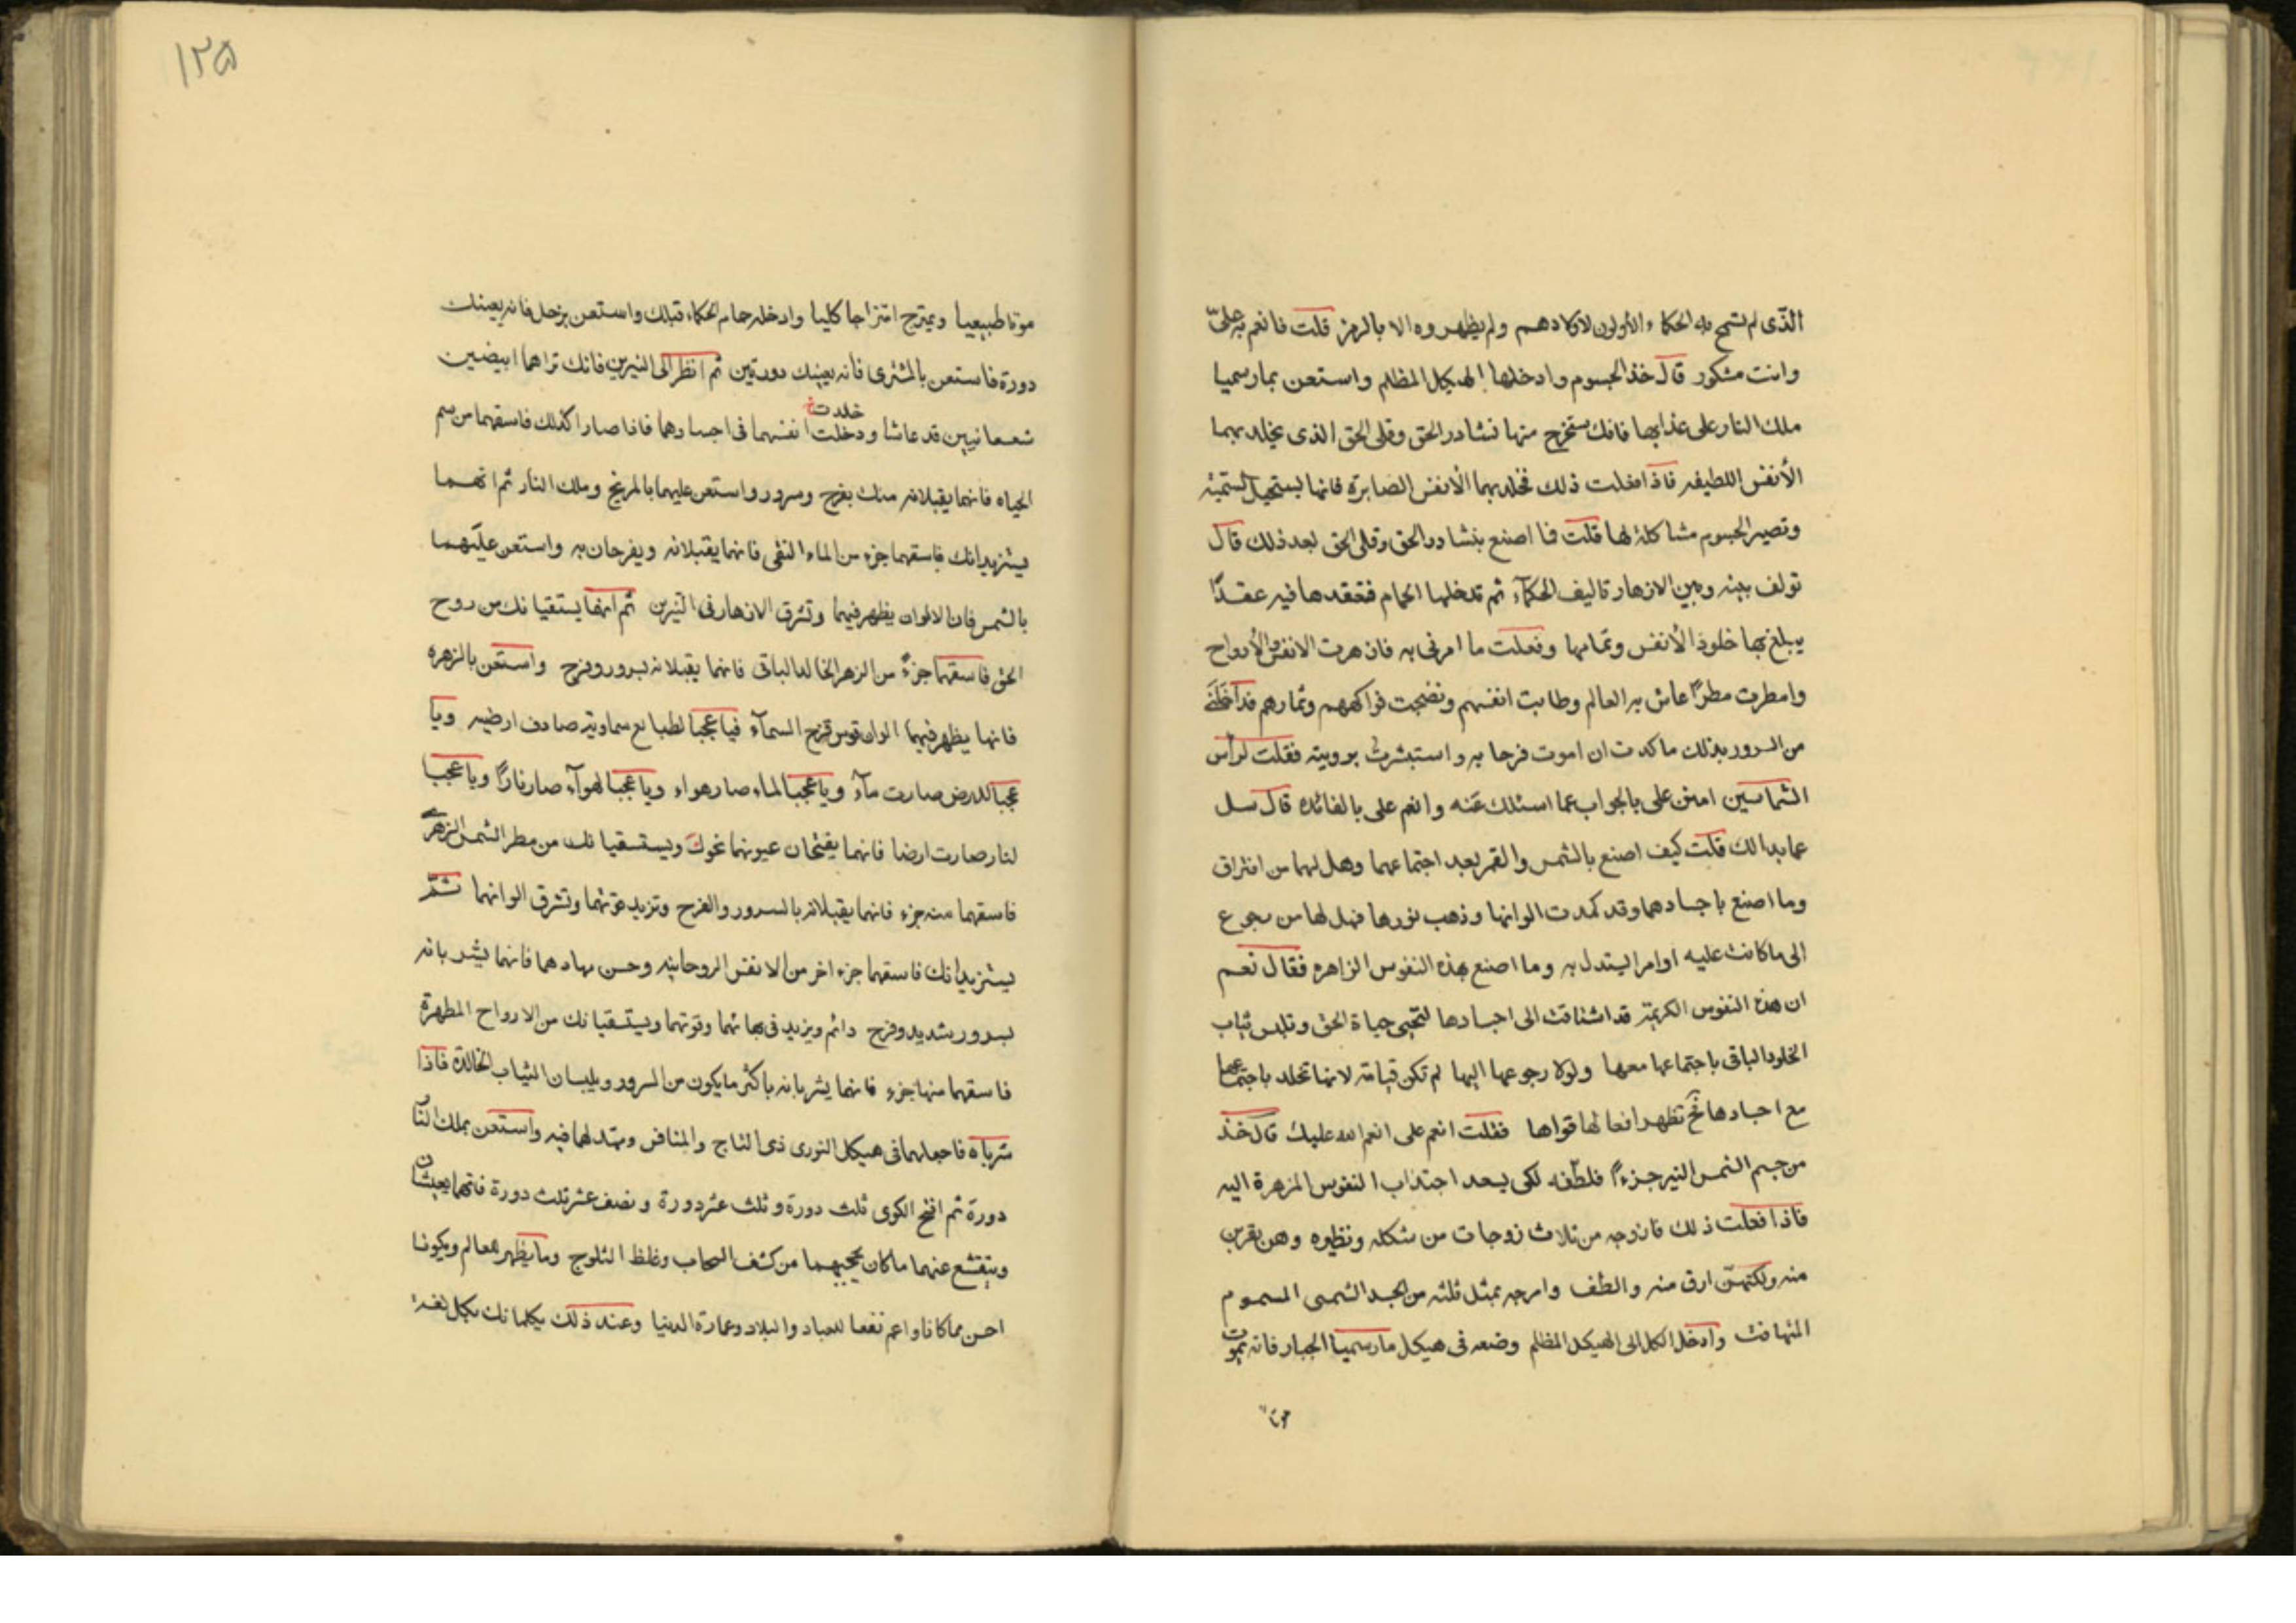 الذى لم تسمح به الحكماء الأولون لاولادهم ولم يظهروه الا بالرمز قلت فانعم به علىّ
وانت مشكور قال خذ الجسوم وادخلها الهيكل المظلم واستعن بمارسميا
ملك النار على عذابها فانك تستخرج منها نشادر الحق وقلى الحق الذى يخلد بهما
الأنفس اللطيفه فاذا فعلت ذلك فخلد بهما الأنفس الصابرة فانها
وتصير الجسوم مشاكلة لها قلت فما اصنع بنشادر الحق وقلى الحق بعد ذلك قال
تولف بينه وبين الازهار تاليف الحكمآء ثم تدخلها الحمام فتعقدها فيه عقدًا
يبلغ بها خلود الأنفس وتمامها وفعلت ما امرنى به فازهرت الانفس والأرواح
وامطرت مطرًا عاش به العالم وطابت انفسهم ونضجت فواكههم وثمارهم
من السرور بذلك ما كدت ان اموت فرحا به واستبشرت برويته فقلت لرأس
الشماسين امنن على بالجواب عما اسئلك عنه وانعم على بالفائده قال سل
عما بدا لك قلت كيف اصنع بالشمس والقمر بعد اجتماعهما وهل لهما من افتراق
وما اصنع باجسادهما وقد كمدت الوانها وذهب نورها فهل لها من رجوع
الى ما كانت عليه اوامر ليتدل به وما اصنع بهذه النفوس الزاهره فقال نعم
ان هذه النفوس الكريمة قد اشتاقت الى اجسادها لتحيى حياة الحق وتلبس ثياب
الخلود الباقى باجتماعها معها ولولا رجوعها اليها لم تكن قيامة لانها تخلد باجتماعها
مع اجسادها تظهر افعالها قواها فقلت انعم على انعم الله عليك قال خذ
من جسم الشمس النير جزءًا فلطّفه لكى يسعد اجتذاب النفوس المزهرة اليه
فاذا فعلت ذلك فازوجه من ثلاث زوجات من شكله ونظيره وهن يقربن
منه ولكنهنّ ارق منه والطف وامرجه بمثل ثلثه من الجسد الشمسى المسموم
المتهافت وادخل الكل الى الهيكل المظلم وضعه فى هيكل مارسميا الجبار فانه يموت
موتا
١٢٥
موتا طبيعيا ويمتزج امتزاجا كليا وادخله حمام الحكماء قبلك واستعن بزحل فانه يعينك
دورة فاستعن بالمشترى فانه يعينك دورتين ثم انظر الى النيرين فانك تراهما ابيضين
خلدت خ
شعسعانيين قد عاشا ودخلت انفسهما فى اجسادهما فاذا صارا كذلك فاسقهما من سم
الحياه فانهما يقبلانه منك بفرح وسرور واستعن عليهما بالمريخ وملك النار ثم انهما
يستزيدانك فاسقهما جزء من الماء النقى فانهما يقبلانه ويفرحان به واستعن عليهما
بالشمس فان الالوان يظهر فيهما وتشرق الازهار فى النيرين ثم انهما يستقيانك من روح
الحق فاسقهما جزءً من الزهر الخالد الباقى فانهما يقبلانه بسرور وفرح واستعن بالزهره
فانها يظهر فيهما الوان قوس قزح السمآء فيا عجبا لطبائع سماوية صارت ارضيه ويا
عجبا للارض صارت مآء ويا عجبا لماء صار هواء ويا عجبا لهوآء صار نارًا ويا عجبا
لنار صارت ارضا فانهما يفتحان عيونهما نحوك ويستسقيانك من مطر الشمس الزهرة
فاسقهما منه جزء فانهما يقبلانه بالسرور والفرح وتزيد قوتهما وتشرق الوانهما ثمّ
يستزيدانك فاسقهما جزء اخر من الانفس الروحانيه وحسن مهادهما فانهما يشربانه
بسرور شديد وفرح دائم ويزيد فى بهائهما وقوتهما ويستسقيانك من الارواح المطهرة
فاسقهما منها جزء فانهما يشربانه باكثر ما يكون من السرور ويلبسان الثياب الخالدة فاذا
شرباه فاجعلهما فى هيكل النورى ذى التاج والمنافس ومهد لهما فيه واستعن بملك النار
دورة ثم افتح الكوى ثلث دورة وثلث عشر دورة ونصف عشر ثلث دورة فانهما يعيشان
وينقشع عنهما ما كان يحجبهما من كثف السحاب وغلظ الثلوج وما يظهر للعالم ويكونا
احسن مما كانا واعم نفعا للعباد والبلاد وعمارة الدنيا وعند ذلك يكلمانك بكل لغة